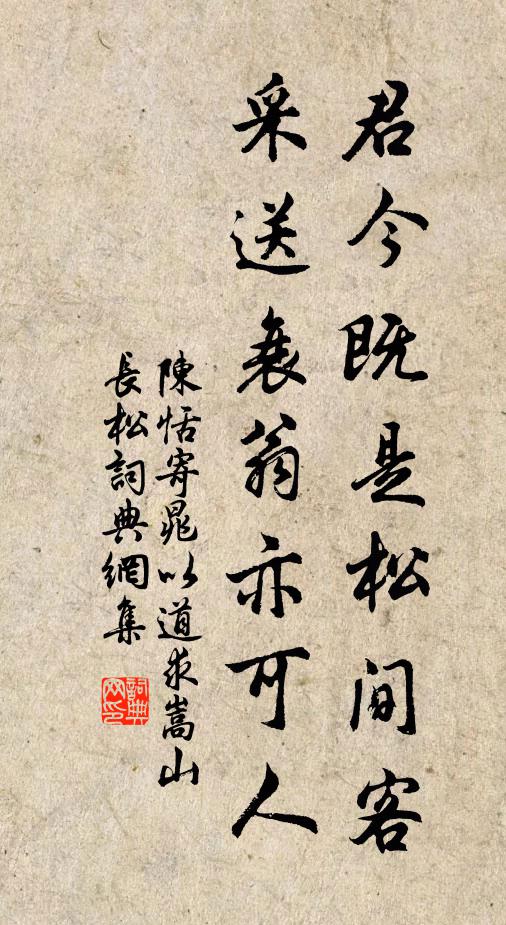 君今既是松間客
采送衰翁亦可人
陳恬寄晁以道求嵩山
長松詞典網集
詞典
网印